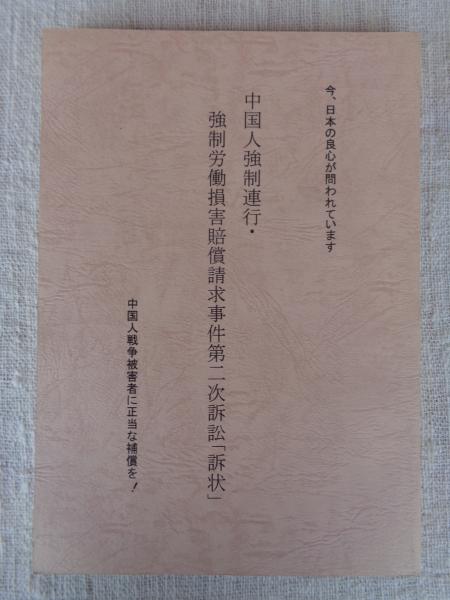 今、日本の良心が問われています
中国人強制連行・
強制労働損害賠償請求事件第二次訴訟「訴状」
中国人戦争被害者に正当な補償を！